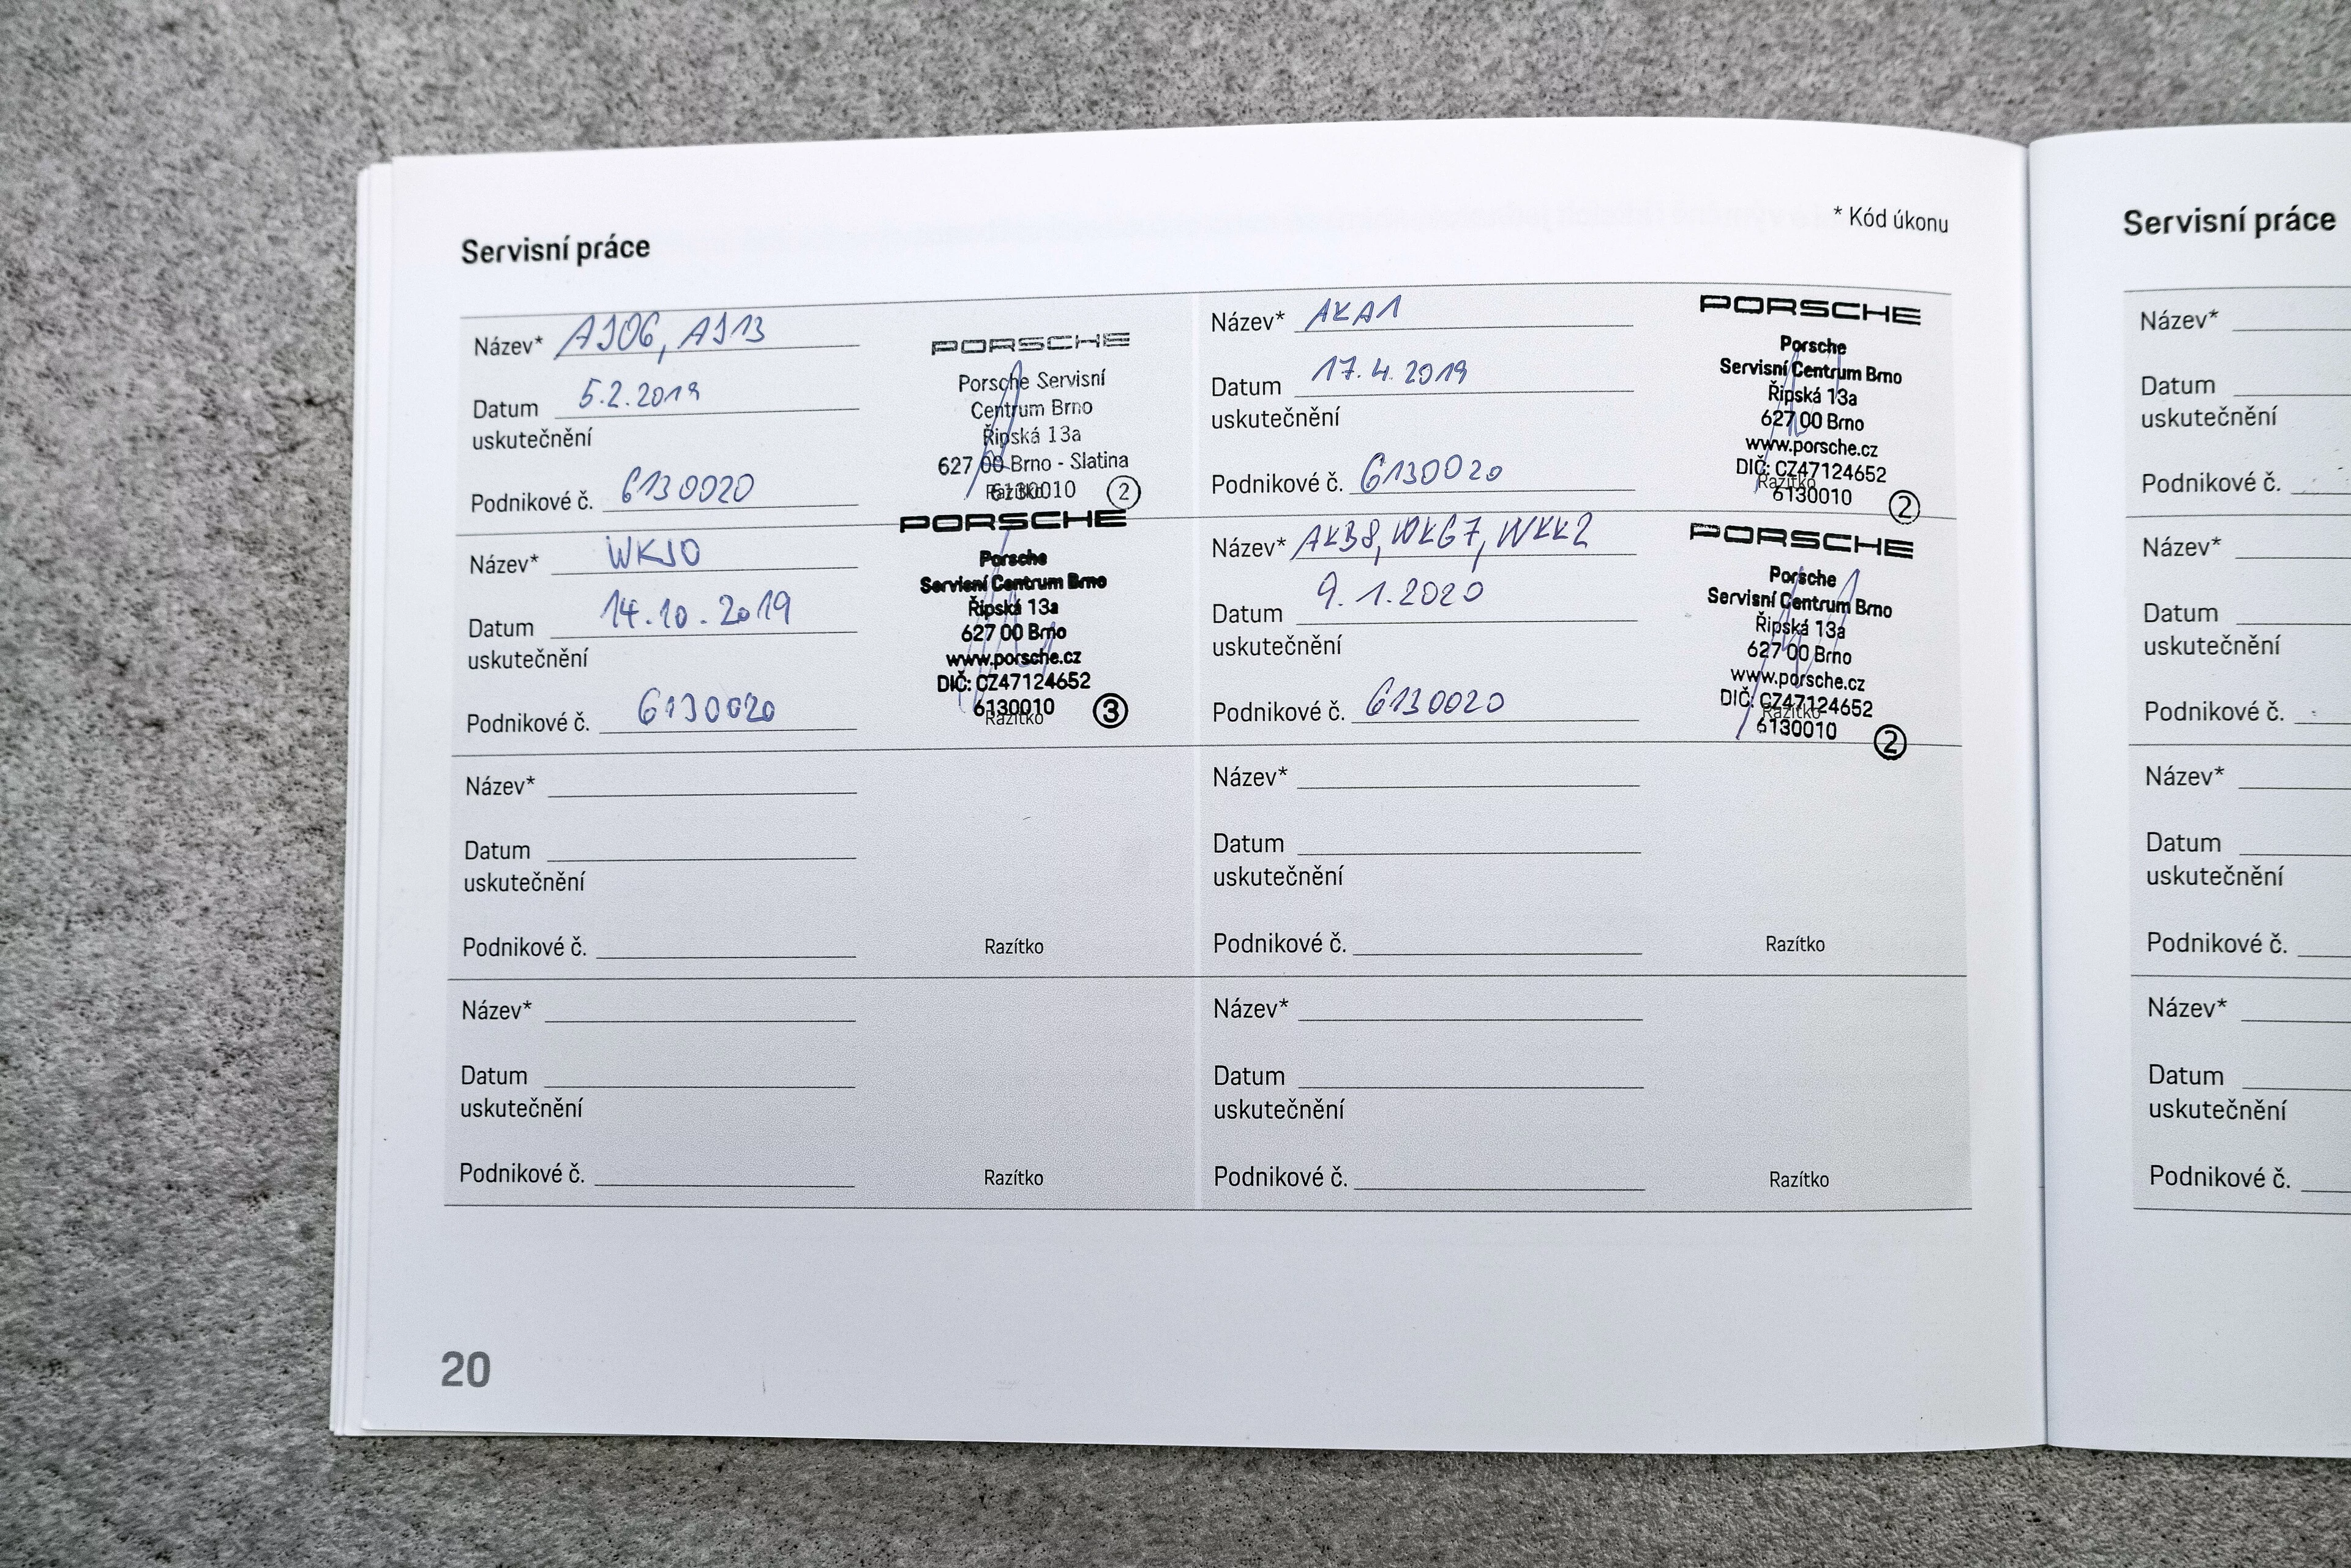 * Kód úkonu
Servisní práce
Název* AJ06, AJ13
Datum 5.2.2019
uskutečnění
Podnikové č. 6130020
PORSCHE
Porsche Servisní
Centrum Brno
Řipská 13a
627 00 Brno - Slatina
6130010 2
Razítko
Název* AKA1
Datum 17.4.2019
uskutečnění
Podnikové č. 6130020
PORSCHE
Porsche
Servisní Centrum Brno
Řipská 13a
627 00 Brno
www.porsche.cz
DIČ: CZ47124652
Razítko
6130010 2
Název* WKJ0
Datum 14.10.2019
uskutečnění
Podnikové č. 6130020
PORSCHE
Porsche
Servisní Centrum Brno
Řipská 13a
627 00 Brno
www.porsche.cz
DIČ: CZ47124652
6130010 3
Razítko
Název* AKB8, WKG7, WKK2
Datum 9.1.2020
uskutečnění
Podnikové č. 6130020
PORSCHE
Porsche
Servisní Centrum Brno
Řipská 13a
627 00 Brno
www.porsche.cz
DIČ: CZ47124652
Razítko
6130010 2
Název*
Datum
uskutečnění
Podnikové č.
Razítko
Název*
Datum
uskutečnění
Podnikové č.
Razítko
Název*
Datum
uskutečnění
Podnikové č.
Razítko
Název*
Datum
uskutečnění
Podnikové č.
Razítko
20
Servisní práce
Název*
Datum
uskutečnění
Podnikové č.
Název*
Datum
uskutečnění
Podnikové č.
Název*
Datum
uskutečnění
Podnikové č.
Název*
Datum
uskutečnění
Podnikové č.